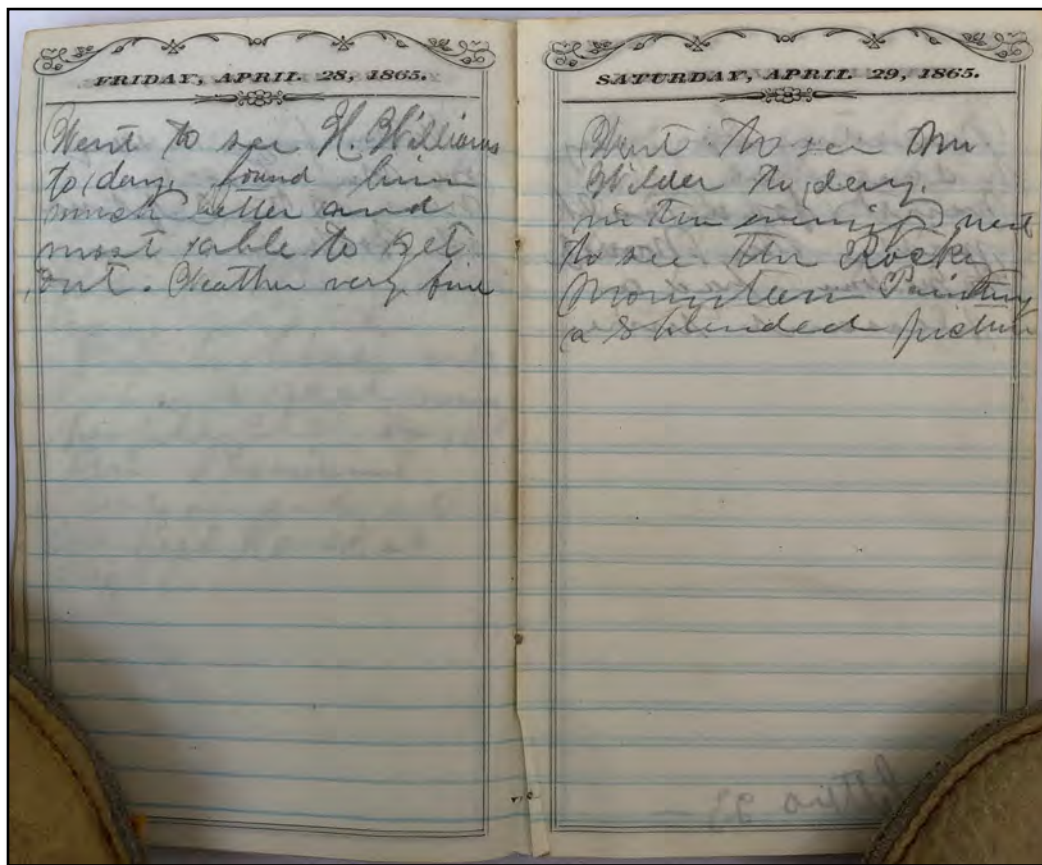 FRIDAY, APRIL 28, 1865.
Went to see H. Williams
to day, found him
much better and
most able to get
out. Weather very fine
SATURDAY, APRIL 29, 1865.
Went to see Mr
Wilder to day.
in the evening went
to see the Rocky
Mountain Painting
a Splended picture